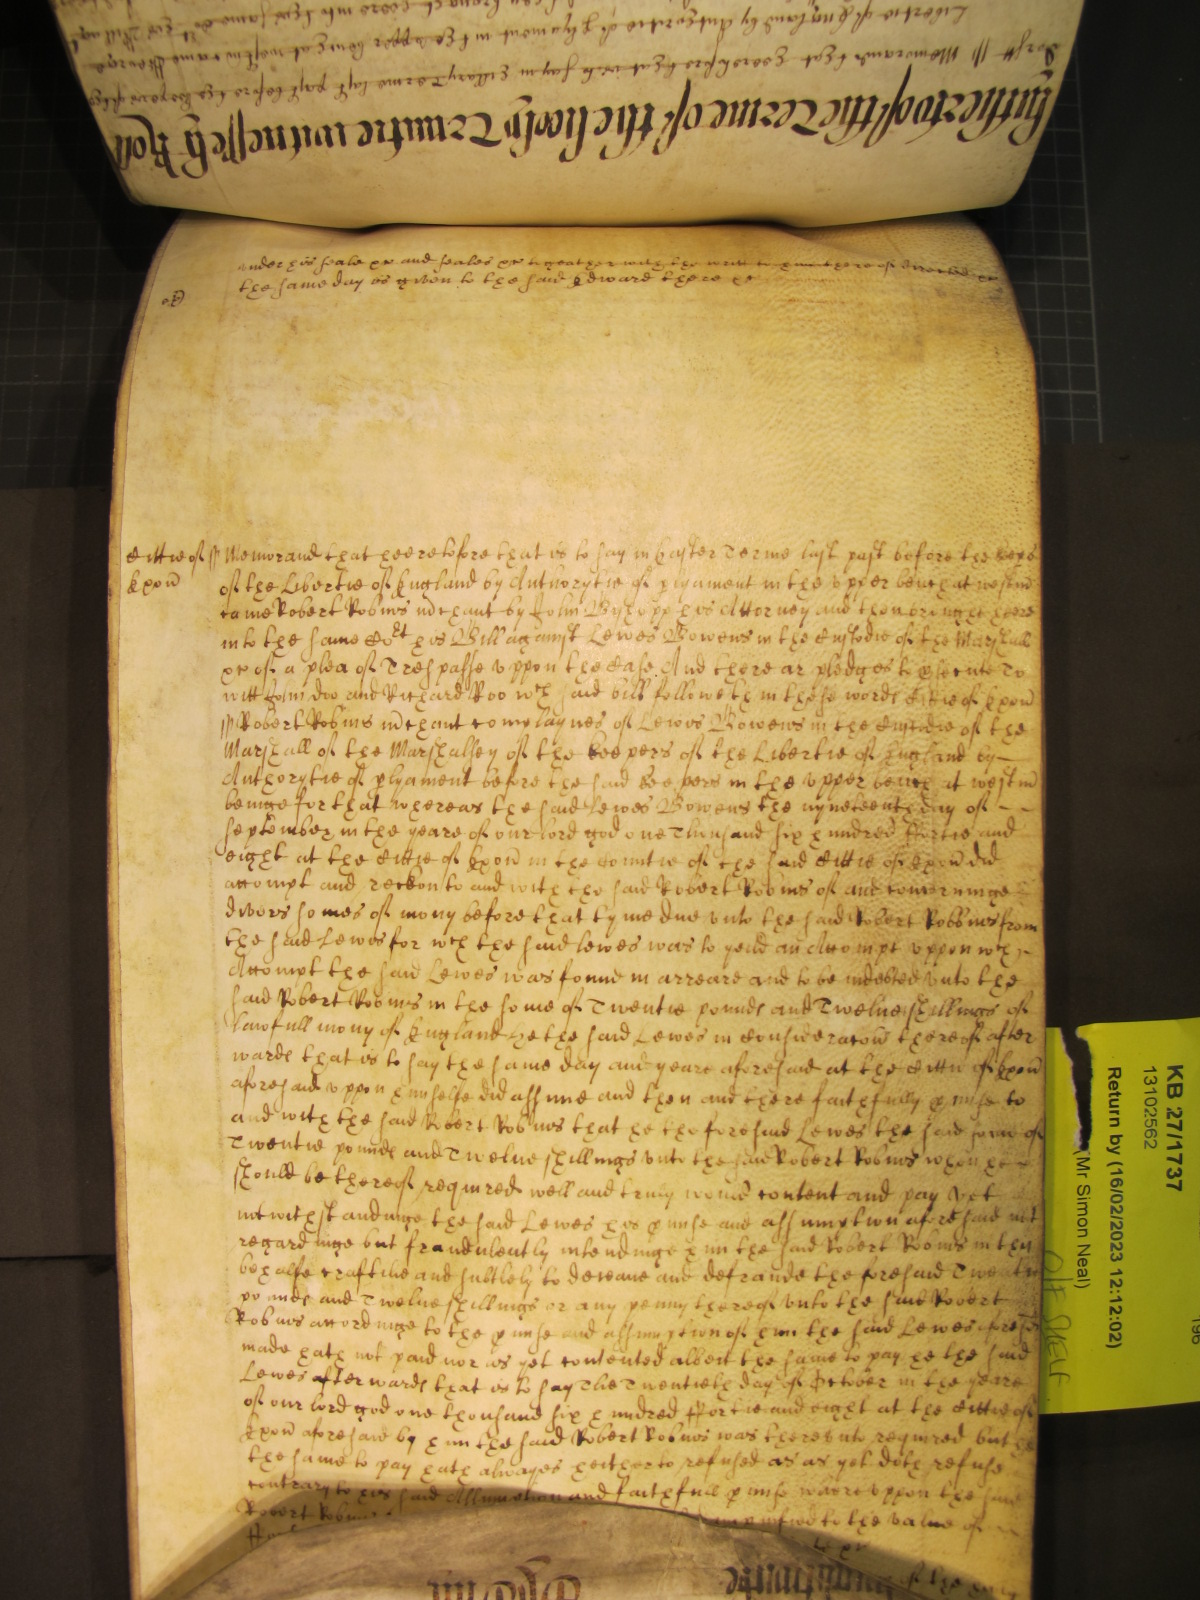 Hitherto of the Terme of the holy Trinitie witnesseth Roll
under his seale &c and seales &c togeather with the writt to him thereof directed &c
the same day is given to the said Edward there &c
Cittie of ss Memorand that heeretofore that is to say in Easter Terme last past before the keepers
Exon of the Libertie of England by Authorytie of plyament in the upper bench at westm
came Robert Robins mchant by John Byshopp his Attorney and then brought heere
into the same Cort his Bill against Lewes Bowens in the Custodie of the Marshall
&c of a plea of Trespasse uppon the Case And there ar pledges to psecute To
witt John Doo and Richard Roo wch said bill followeth in these words Cittie of Exon
ss Robert Robins mchant complaynes of Lewes Bowens in the Custodie of the
Marshall of the Marshalsey of the keepers of the Libertie of England by
Authorytie of plyament before the said keepers in the upper bench at westm
beinge for that whereas the said Lewes Bowens the nyneteenth day of
september in the yeare of our lord god one Thousand six hundred ffortie and
eight at the Cittie of Exon in the Countie of the said Cittie of Exon did
accompt and reckon to and with the said Robert Robins of and concerninge
divers somes of mony before that tyme due unto the said Robert Robins from
the said Lewes for wch the said lewes was to yeild an Accompt uppon wch
Accompt the said Lewes was found in arreare and to be indebted unto the
said Robert Robins in the some of Twentie pounds and Twelve shillings of
lawfull mony of England he the said Lewes in Consideracon thereof after
wards that is to say the same day and yeare aforesaid at the Cittie of Exon
aforesaid uppon himselfe did assume and then and there faithfully pmise to
and with the said Robert Robins that he the foresaid Lewes the said some of
Twentie pounds and Twelve shillings unto the said Robert Robins when he
should be thereof required well and truly would content and pay yet
notwithstandinge the said Lewes his pmise and assumption aforesaid not
regardinge but fraudulently intendinge him the said Robert Robins in this
behalfe craftilie and subtlely to deceave and defraude the foresaid Twentie
pounds and Twelve shillings or any penny thereof unto the said Robert
Robins accordinge to the pmise and assumption of him the said Lewes aforesaid
made hath not paid nor as yet contented albeit the same to pay he the said
Lewes afterwards that is to say The Twentieth day of October in the yeare
of our lord god one thousand six hundred ffortie and eight at the Cittie of
Exon aforesaid by him the said Robert Robins was thereunto required but he
the same to pay hath alwayes heitherto refused as as yet doth refuse
contrary to his said Assumption and faithfull pmise wherevppon the said
Robert Robins
to the value of
KB 27/1737
13102562
Return by (16/02/2023 12:12:02)
(Mr Simon Neal)